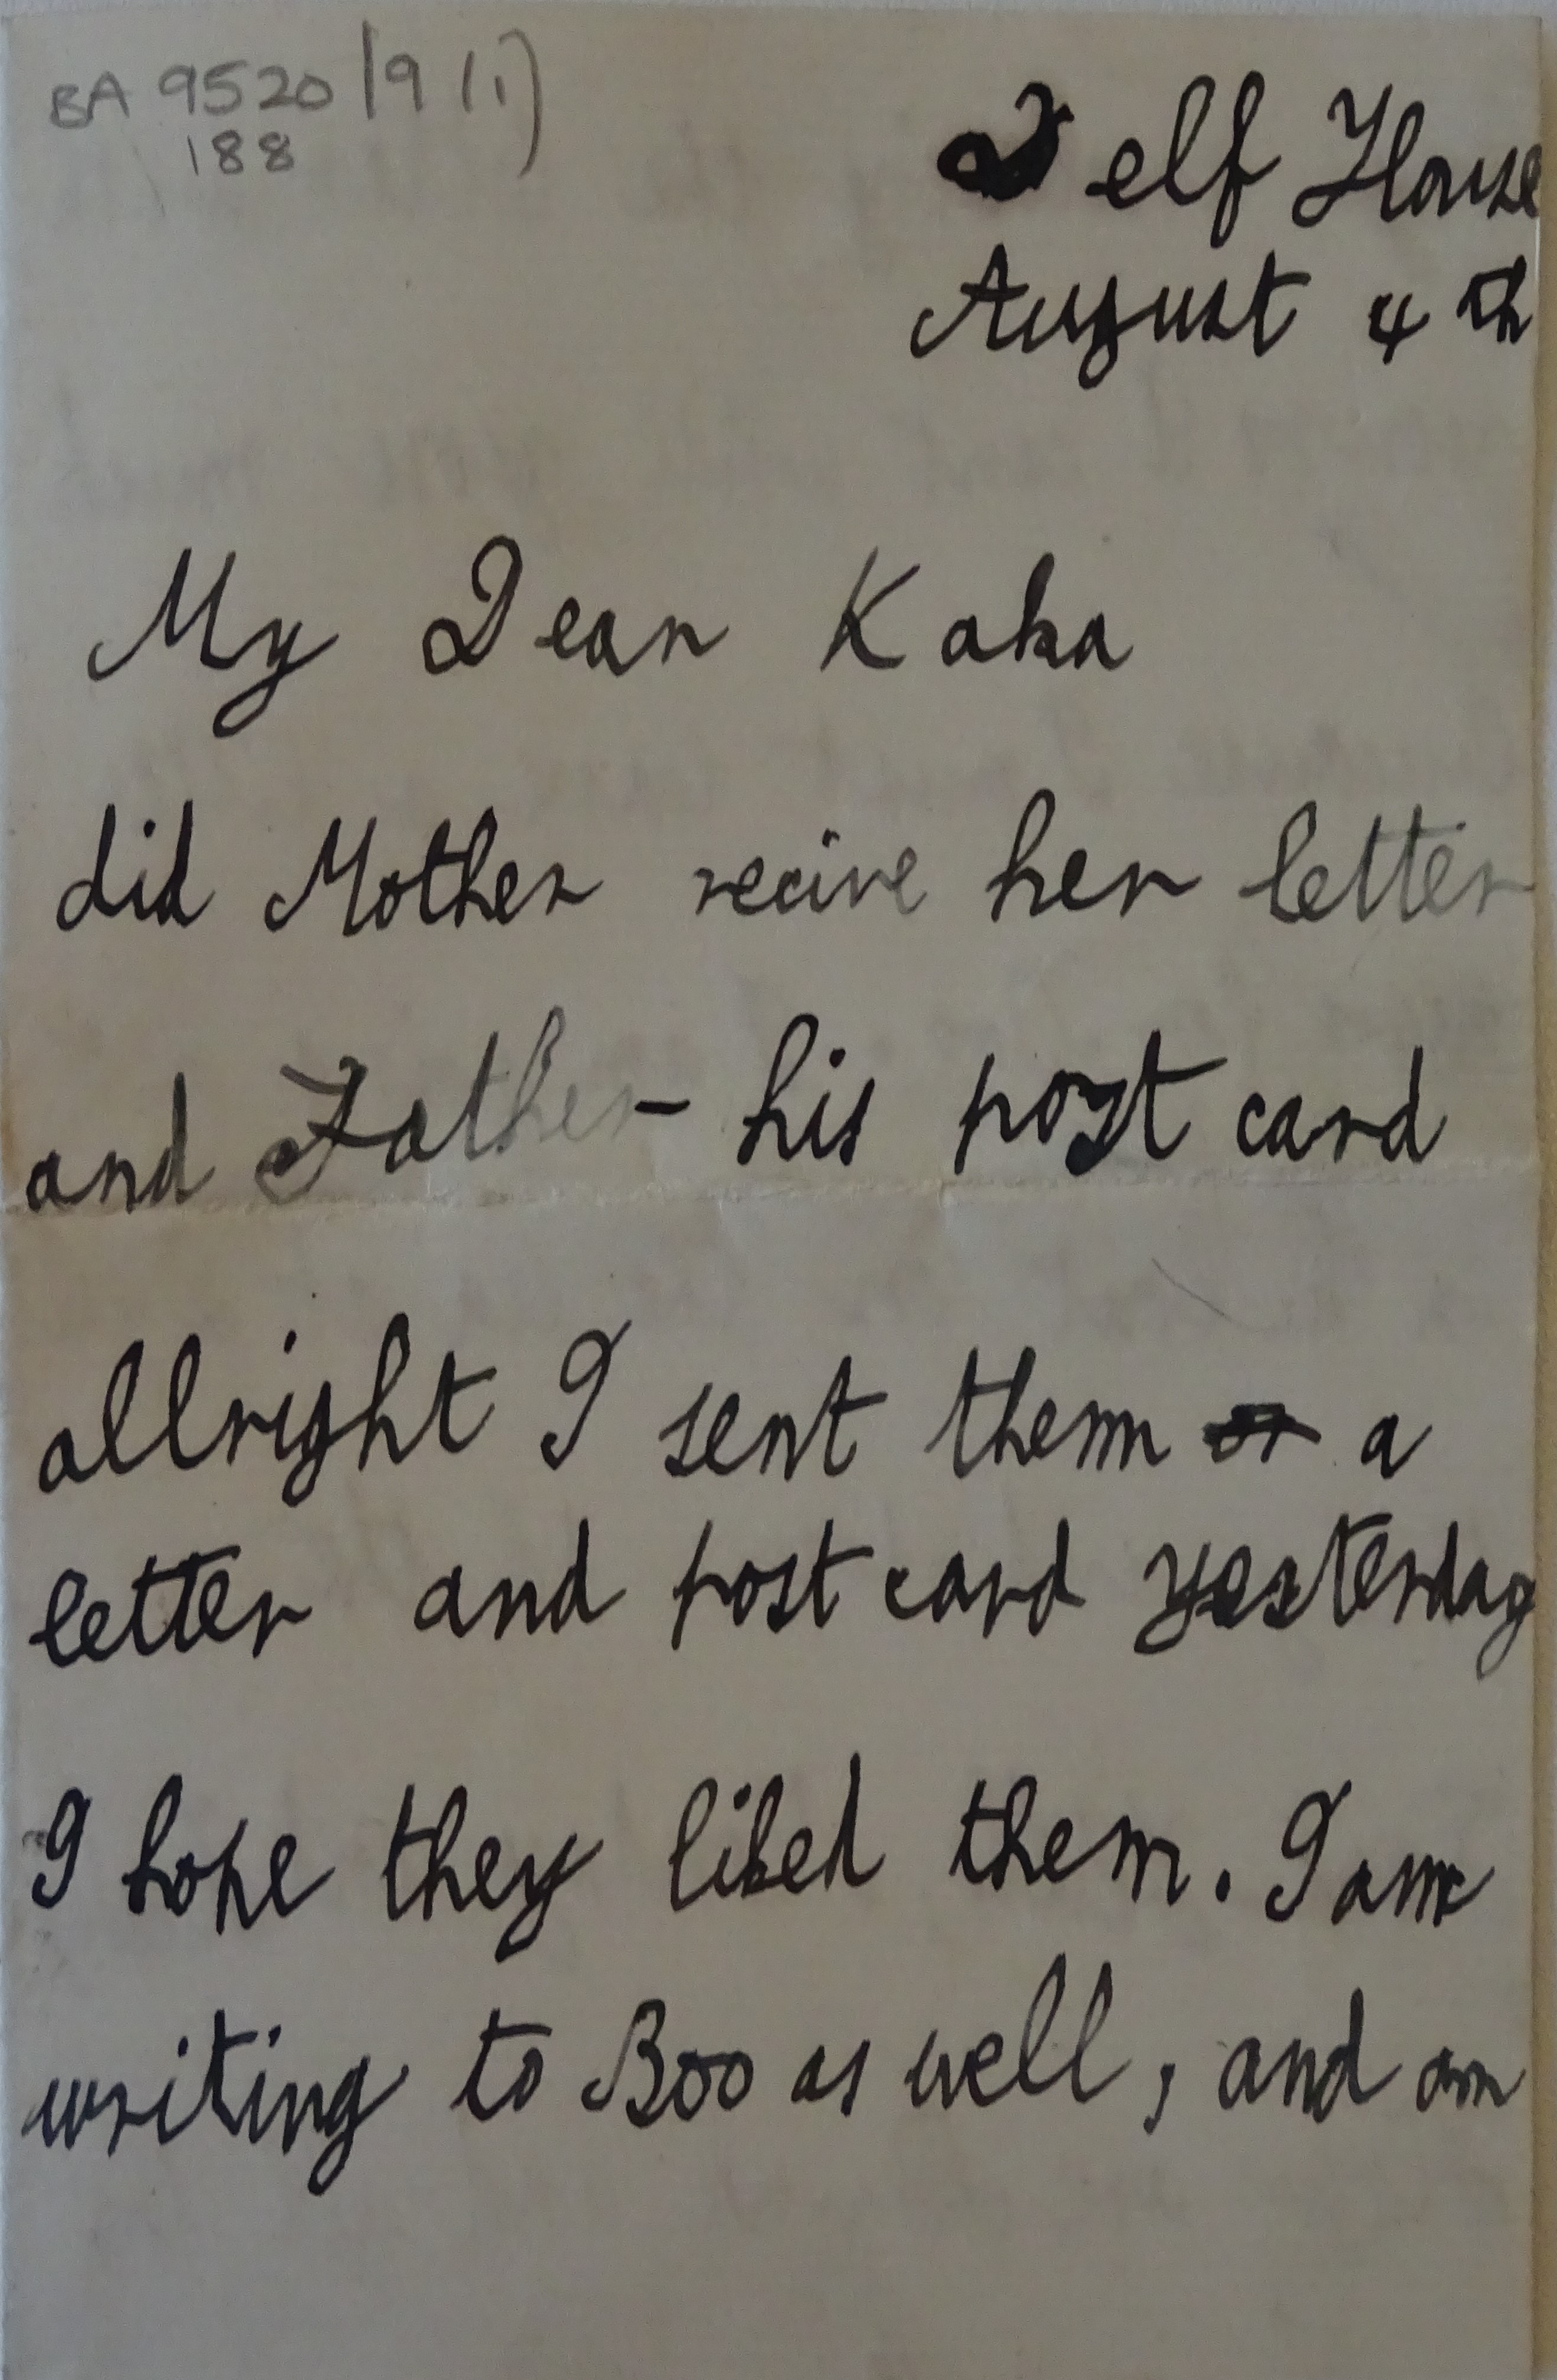 BA 9520/9(i)
188
Delf House
August 4th
My Dear Kaka
did Mother recive her letter
and Father his post card
allright I sent them a
letter and post card yesterday
I hope they liked them. I am
writing to Boo as well, and am